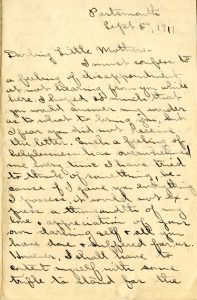 Portsmouth
Sept 5th, 1911
Darling Little Mother:-
I must confess to
a feeling of disappointment
at not hearing from you while
here. I hoped
you would answer my
as to what to bring you, but
I fear you did not receive
the letter. Such a feeling of
helplessness has overwhelmed
me every time I have tried
to think of something, be-
cause if I gave you everything
I possess it would not ex-
press a thousandth of my
love & appreciation of your
own darling self & all you
have done & suffered for us.
However, I shall have to
content myself with some
trifle to stand for the